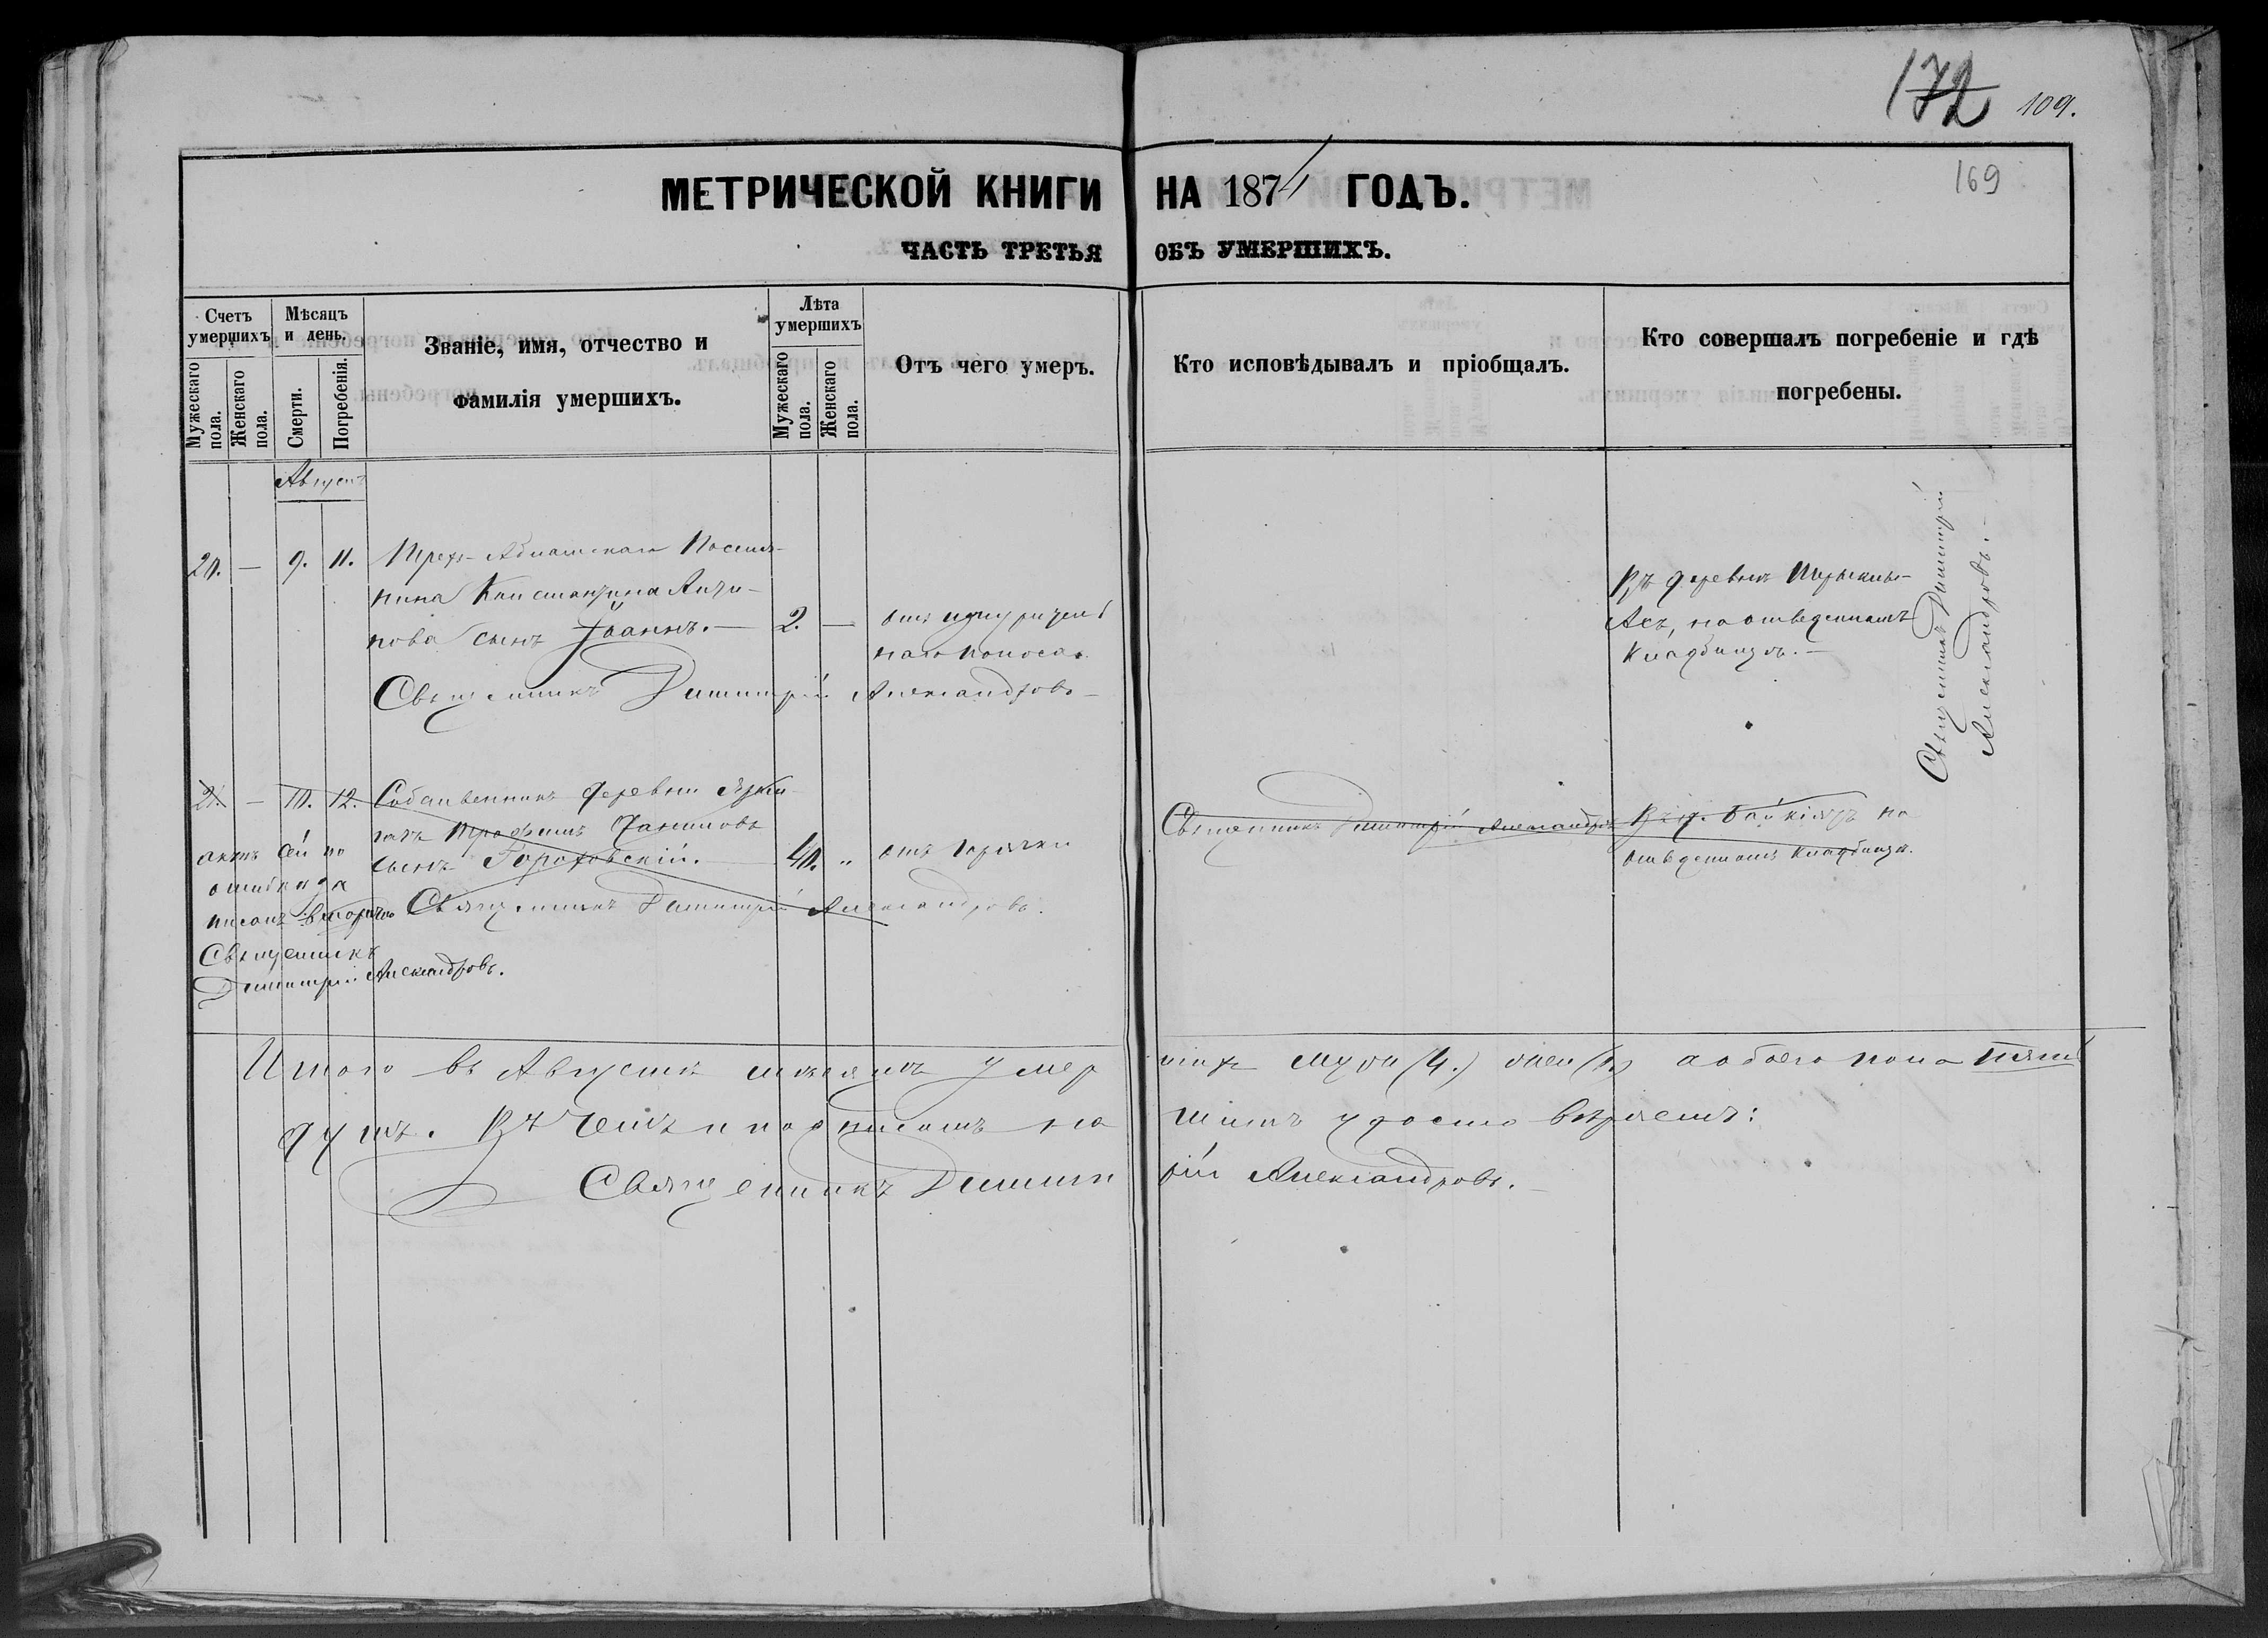 172 109.
169
МЕТРИЧЕСКОЙ КНИГИ НА 1871 ГОДЪ.
ЧАСТЬ ТРЕТЬЯ ОБЪ УМЕРШИХЪ.
Счетъ умершихъ
Мужескаго пола.
Женскаго пола.
Мѣсяцъ и день.
Смерти.
Погребенія.
Званіе, имя, отчество и
фамилія умершихъ.
Лѣта умершихъ
Мужескаго пола.
Женскаго пола.
Отъ чего умеръ.
Кто исповѣдывалъ и пріобщалъ.
Кто совершалъ погребеніе и гдѣ
погребены.
Августъ
20. — 9. 11. Трехъ-Абламскаго Поселя-
нина Константина
нова сынъ Іоаннъ. — 2. —
отъ изнурительнаго поноса.
Священникъ Димитрій Александровъ
Въ деревнѣ
Асъ, на отведенномъ
кладбищѣ. —
Священникъ Димитрій
Александровъ. —
21. — 10. 12. Собственникъ деревни
Трофимъ
сынъ Гороховскій. — 40. „ отъ горячки
Священникъ Димитрій Александровъ.
Священникъ Димитрій Александровъ
Въ д. Байкіятъ на
отведенномъ кладбищѣ.
актъ сей по
ошибкѣ за
писанъ вторично
Священникъ
Димитрій Александровъ.
Итого въ Августѣ мѣсяцѣ умершихъ муж (4.) жен (1.) а обоего пола пять
душъ. Въ чемъ и подписомъ нашимъ удостовѣряемъ:
Священникъ Димитрій Александровъ. —